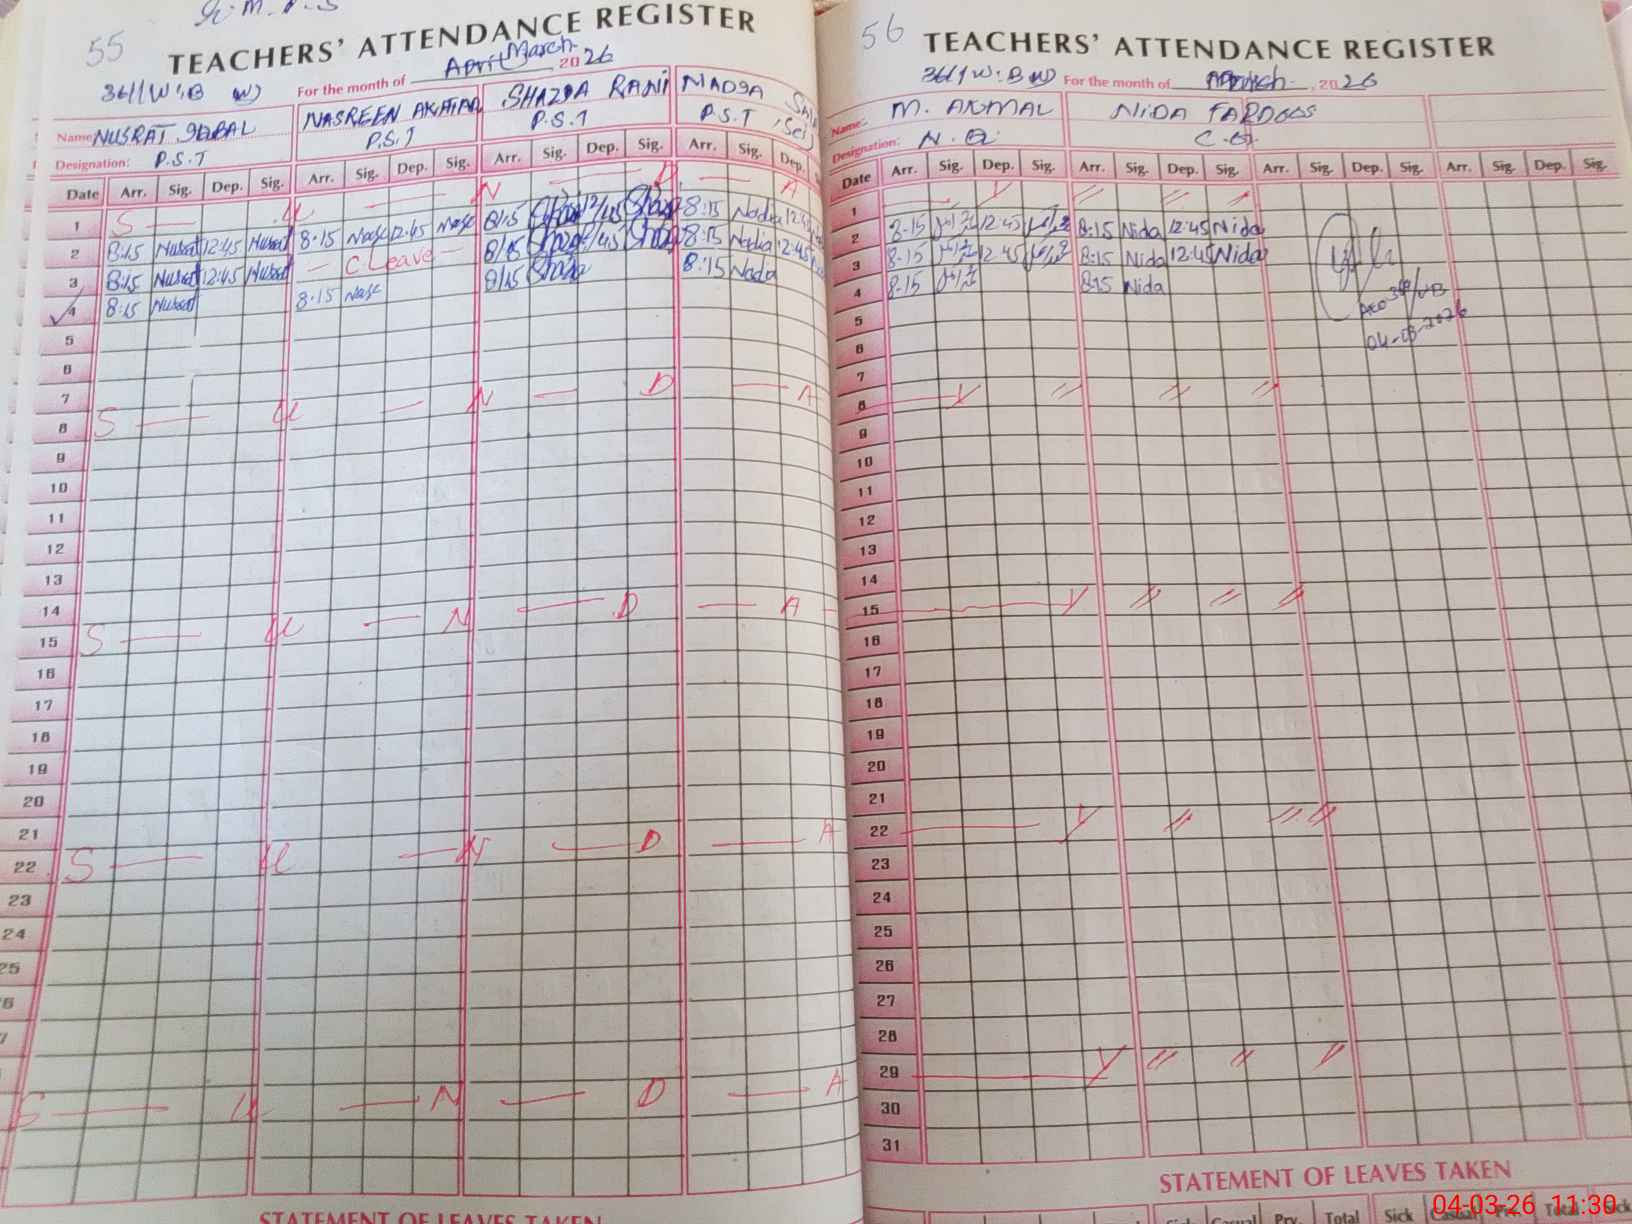 55
TEACHERS' ATTENDANCE REGISTER
For the month of April March 2026
361/W.B W)
Name: NUSRAT IQBAL NASREEN AKHTAR SHAZIA RANI NADIA
Designation: P.S.T P.S.T P.S.T P.S.T
Date Arr. Sig. Dep. Sig. Arr. Sig. Dep. Sig. Arr. Sig. Dep. Sig. Arr. Sig. Dep.
1 S — U — N — D — A
2 8:15 Nusrat 12:45 Nusrat 8:15 Nasr 12:45 Nasr 8/15 Shazia 12/45 Shazia 8:15 Nadia 12:45
3 8:15 Nusrat 12:45 Nusrat — C. Leave — 8/15 Shazia /45 Shazia 8:15 Nadia 12:45
4 8:15 Nusrat 8:15 Nasr 8/15 Shazia 8:15 Nadia
5
6
7
8 S — U — N — D — A
9
10
11
12
13
14
15 S — U — N — D — A
16
17
18
19
20
21
22 S — U — N — D — A
23
24
25
6
7
S — U — N — D — A
STATEMENT OF LEAVES TAKEN
56
TEACHERS' ATTENDANCE REGISTER
361/W.B W) For the month of March, 2026
Name: M. AKMAL NIDA FARDOUS
Designation: N.Q C.Q
Date Arr. Sig. Dep. Sig. Arr. Sig. Dep. Sig. Arr. Sig. Dep. Sig. Arr. Sig. Dep. Sig.
1 — Y // // //
2 8-15 12:45 8:15 Nida 12:45 Nida
3 8-15 12:45 8:15 Nida 12:45 Nida
4 8-15 8:15 Nida
AEO 361/WB
04-03-2026
5
6
7
8 — Y // // //
9
10
11
12
13
14
15 — Y // // //
16
17
18
19
20
21
22 — Y // // //
23
24
25
26
27
28
29 — Y // // //
30
31
STATEMENT OF LEAVES TAKEN
Sick Casual Prv. Total Sick Casual Prv. Total Sick
04-03-26 11:30